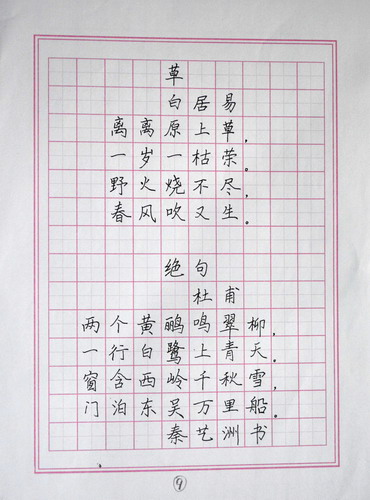 草
白居易
离离原上草,
一岁一枯荣。
野火烧不尽,
春风吹又生。
绝句
杜甫
两个黄鹂鸣翠柳,
一行白鹭上青天。
窗含西岭千秋雪,
门泊东吴万里船。
秦艺洲书
9